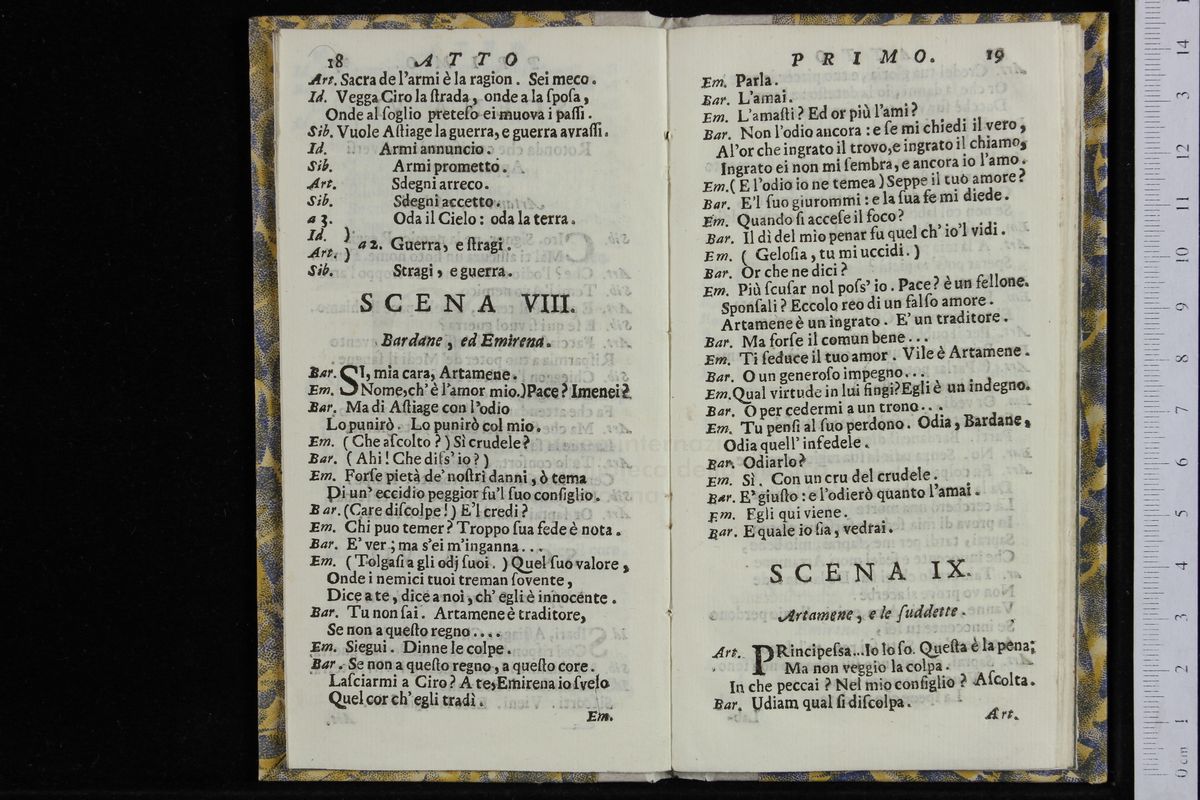 18 ATTO
Art. Sacra de l'armi è la ragion. Sei meco.
Id. Vegga Ciro la ſtrada, onde a la ſpoſa,
Onde al ſoglio preteſo ei muova i paſſi.
Sib. Vuole Aſtiage la guerra, e guerra avraſſi.
Id. Armi annuncio.
Sib. Armi prometto.
Art. Sdegni arreco.
Sib. Sdegni accetto.
a 3. Oda il Cielo: oda la terra.
Id. )
Art. ) a 2. Guerra, e ſtragi.
Sib. Stragi, e guerra.
SCENA VIII.
Bardane, ed Emirena.
Bar. SI, mia cara, Artamene.
Em. Nome, ch'è l'amor mio.) Pace? Imenei?
Bar. Ma di Aſtiage con l'odio
Lo punirò. Lo punirò col mio.
Em. (Che aſcolto?) Sì crudele?
Bar. (Ahi! Che diſs'io?)
Em. Forſe pietà de' noſtri danni, ò tema
Di un' eccidio peggior fu'l ſuo conſiglio.
Bar. (Care diſcolpe!) E'l credi?
Em. Chi puo temer? Troppo ſua fede è nota.
Bar. E' ver; ma s'ei m'inganna...
Em. (Tolgaſi a gli odj ſuoi.) Quel ſuo valore,
Onde i nemici tuoi treman ſovente,
Dice a te, dice a noi, ch'egli è innocente.
Bar. Tu non ſai. Artamene è traditore,
Se non a queſto regno....
Em. Siegui. Dinne le colpe.
Bar. Se non a queſto regno, a queſto core.
Laſciarmi a Ciro? A te, Emirena io ſvelo
Quel cor ch'egli tradì.
Em.
PRIMO. 19
Em. Parla.
Bar. L'amai.
Em. L'amaſti? Ed or più l'ami?
Bar. Non l'odio ancora: e ſe mi chiedi il vero,
Al'or che ingrato il trovo, e ingrato il chiamo,
Ingrato ei non mi ſembra, e ancora io l'amo.
Em. (E l'odio io ne temea) Seppe il tuo amore?
Bar. E'l ſuo giurommi: e la ſua fe mi diede.
Em. Quando ſi acceſe il foco?
Bar. Il dì del mio penar fu quel ch' io'l vidi.
Em. (Geloſia, tu mi uccidi.)
Bar. Or che ne dici?
Em. Più ſcuſar nol poſs' io. Pace? è un fellone.
Sponſali? Eccolo reo di un falſo amore.
Artamene è un ingrato. E' un traditore.
Bar. Ma forſe il comun bene...
Em. Ti ſeduce il tuo amor. Vile è Artamene.
Bar. O un generoſo impegno...
Em. Qual virtude in lui fingi? Egli è un indegno.
Bar. O per cedermi a un trono...
Em. Tu penſi al ſuo perdono. Odia, Bardane,
Odia quell' infedele.
Bar. Odiarlo?
Em. Sì. Con un cru del crudele.
Bar. E' giuſto: e l'odierò quanto l'amai.
Em. Egli qui viene.
Bar. E quale io ſia, vedrai.
SCENA IX.
Artamene, e le ſuddette.
Art. PRincipeſsa... Io lo ſo. Queſta è la pena;
Ma non veggio la colpa.
In che peccai? Nel mio conſiglio? Aſcolta.
Bar. Udiam qual ſi diſcolpa.
Art.